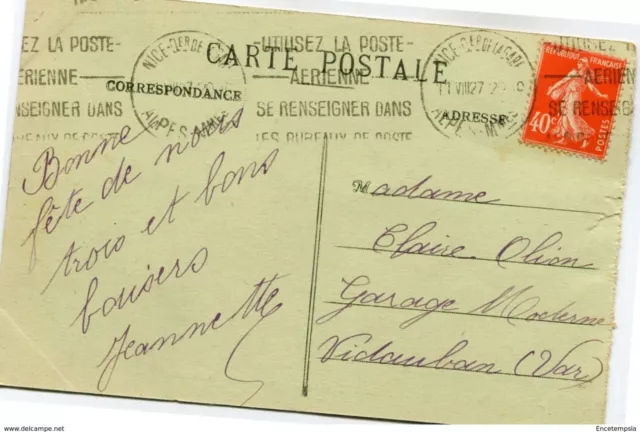 EZ LA POSTE-
AERIENNE
RENSEIGNER DANS
BUREAUX DE POSTE
NICE-
ALPES-MMES
UTILISEZ LA POSTE-
AERIENNE
SE RENSEIGNER DANS
LES BUREAUX DE POSTE
NICE-
11 VIII 27
ALPES-MMES
CARTE POSTALE
CORRESPONDANCE
ADRESSE
REPUBLIQUE FRANÇAISE
40c
POSTES
UTILISEZ
AERIEN
SE RENSEIG
Bonne
fête de nous
trois et bons
baisers
Jeannette
Madame
Claire Olion
Garage Moderne
Vidauban (Var)
www.delcampe.net
Encetempsla